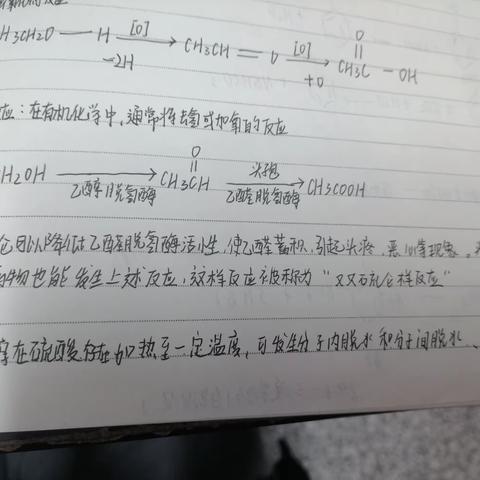 H3CH2O — H [O] → -2H CH3CH = O [O] → +O CH3C(=O) - OH
应:在有机化学中,通常将去氢或加氧的反应
H2OH → 乙醇脱氢酶 CH3CH(=O) 头孢 → 乙醛脱氢酶 CH3COOH
可以降低乙醛脱氢酶活性,使乙醛蓄积,引起头疼、恶心等现象。
物也能发生上述反应,这样反应被称为“双硫仑样反应”
在硫酸存在加热至一定温度,可发生分子内脱水和分子间脱水、